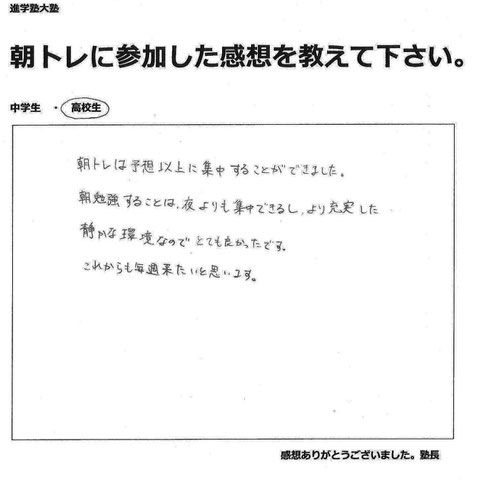 進学塾大塾
朝トレに参加した感想を教えて下さい。
中学生 ・ 高校生
朝トレは予想以上に集中することができました。
朝勉強することは、夜よりも集中できるし、より充実した
静かな環境なのでとても良かったです。
これからも毎週来たいと思います。
感想ありがとうございました。塾長